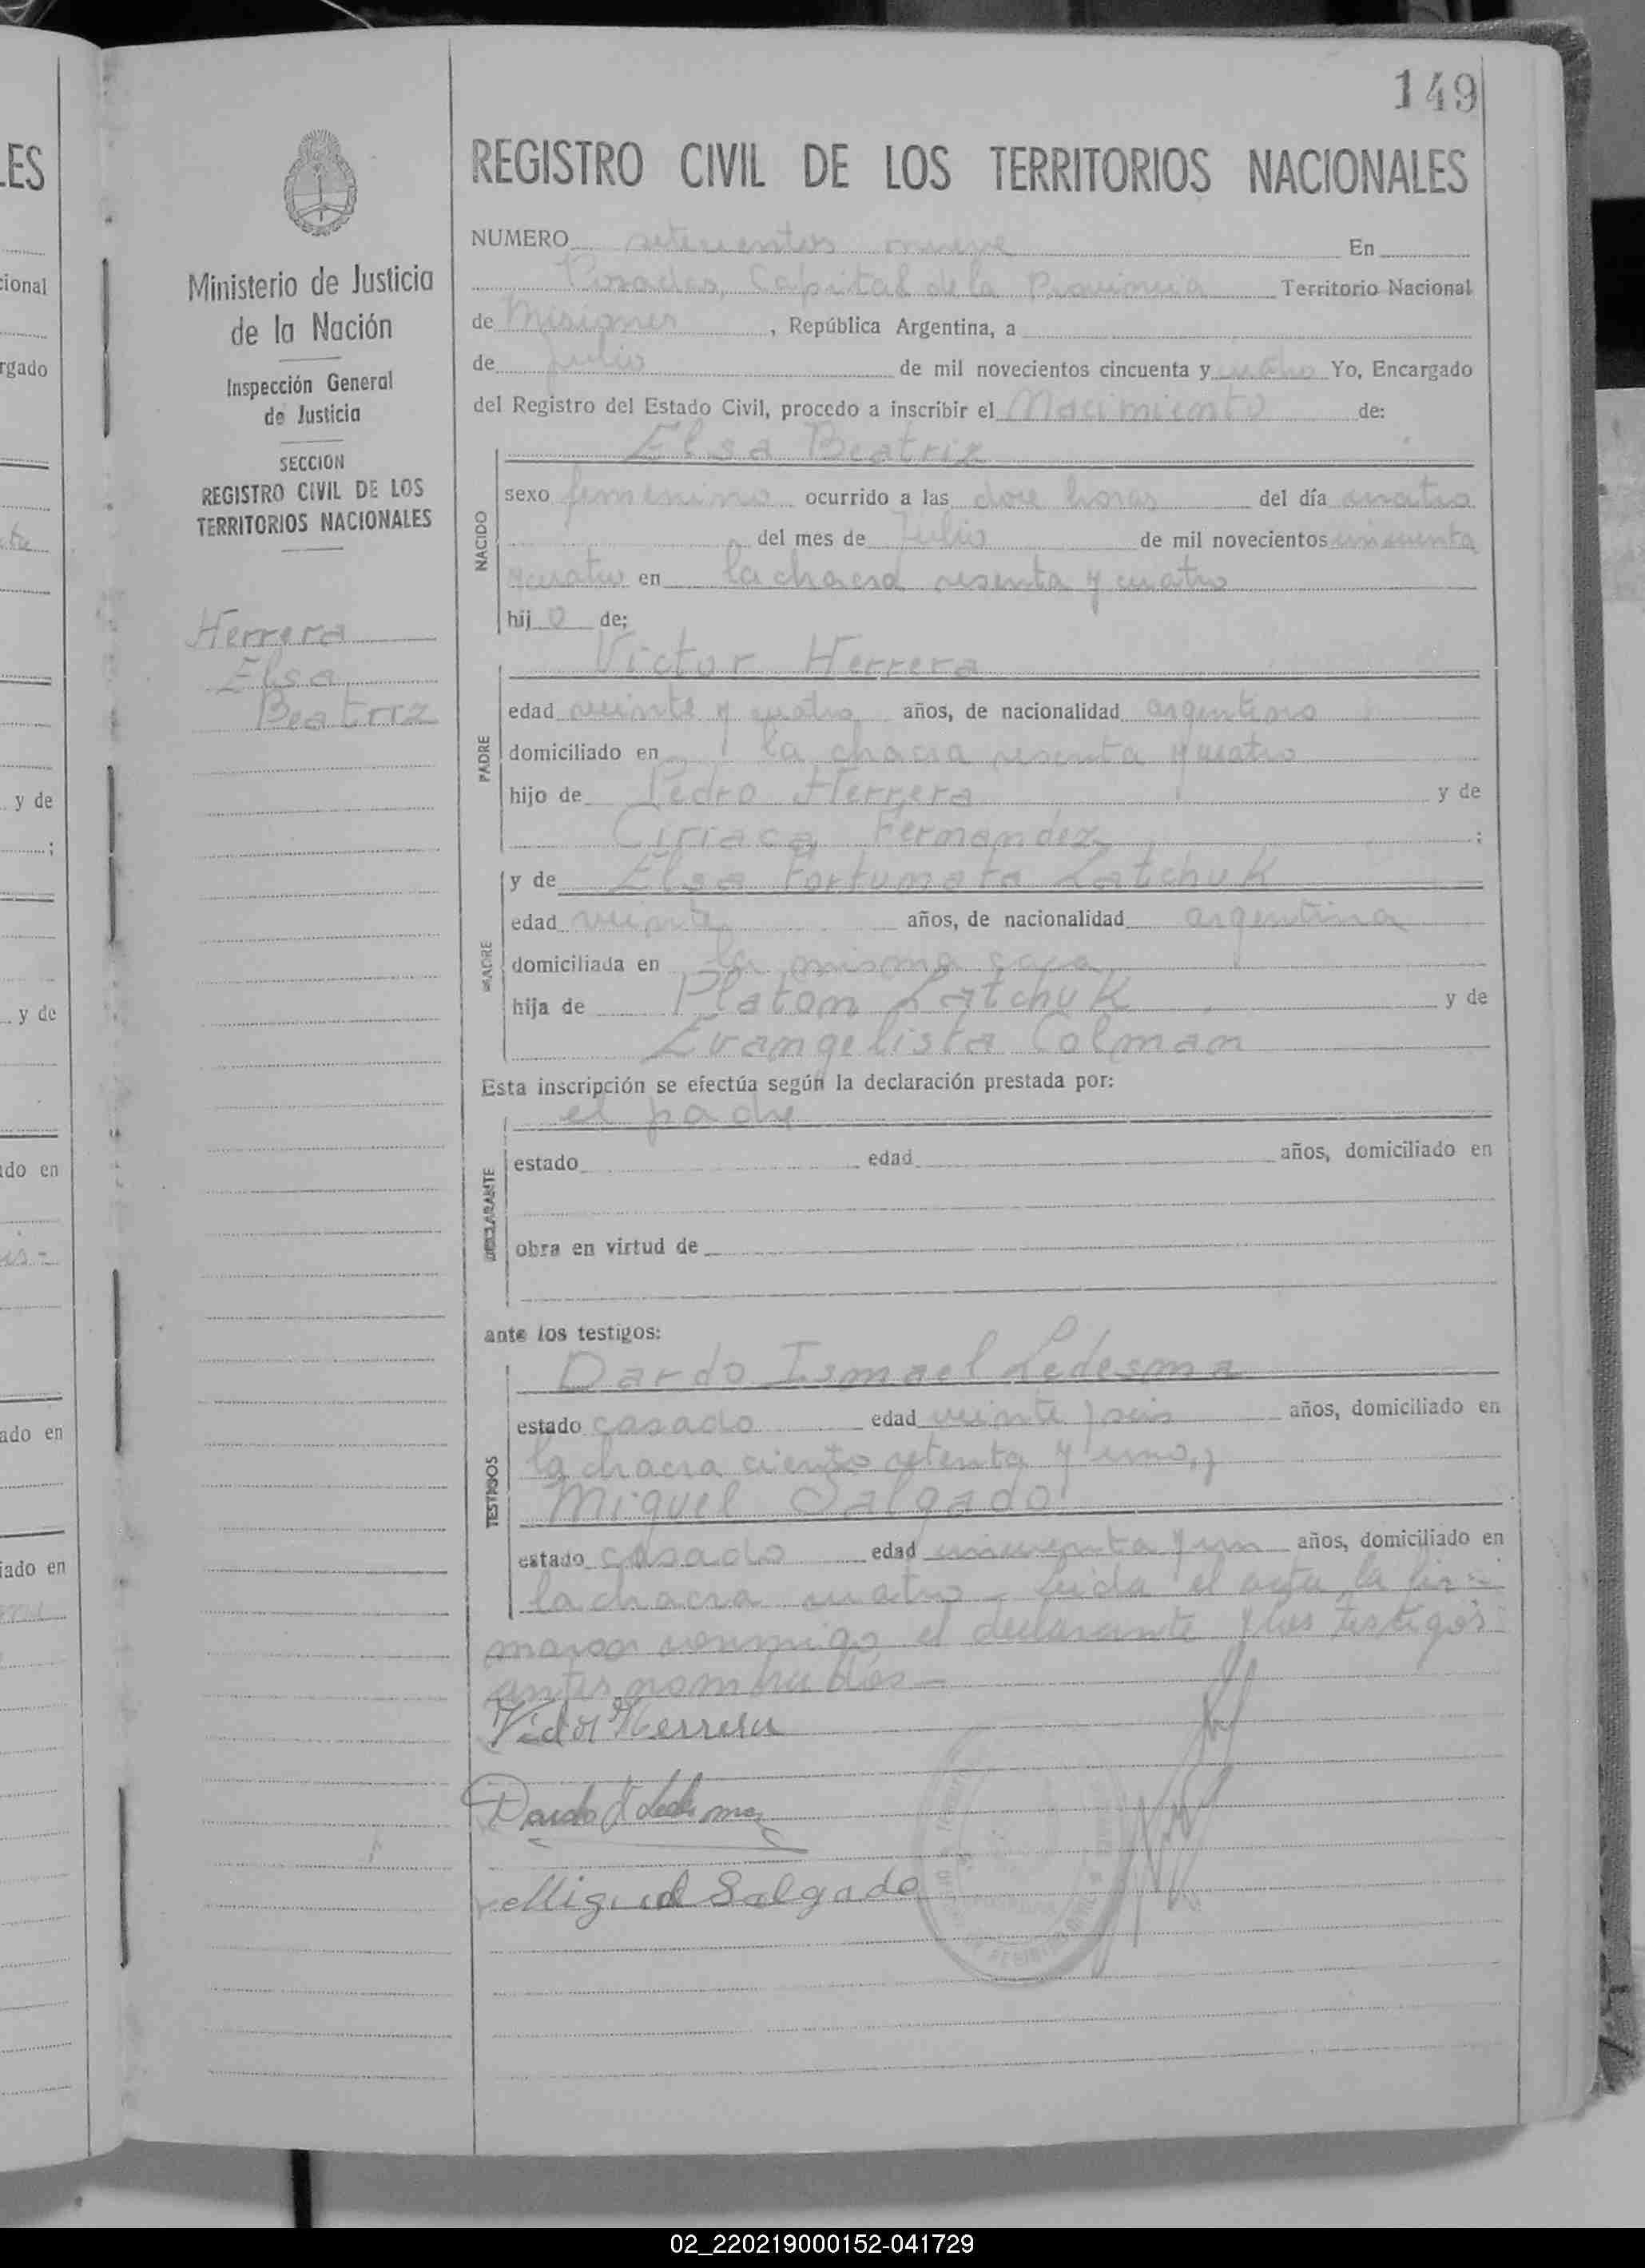 149
REGISTRO CIVIL DE LOS TERRITORIOS NACIONALES
Ministerio de Justicia
de la Nación
Inspección General
de Justicia
SECCION
REGISTRO CIVIL DE LOS
TERRITORIOS NACIONALES
Herrera
Elsa
Beatriz
NUMERO setecientos nueve En
Posadas, Capital de la Provincia Territorio Nacional
de Misiones, República Argentina, a
de Julio de mil novecientos cincuenta y cuatro Yo, Encargado
del Registro del Estado Civil, procedo a inscribir el Nacimiento de:
Elsa Beatriz
NACIDO
sexo femenino ocurrido a las doce horas del día cuatro
del mes de Julio de mil novecientos cincuenta
y cuatro en la chacra sesenta y cuatro
hij a de;
Victor Herrera
PADRE
edad veinte y cuatro años, de nacionalidad argentino
domiciliado en la chacra sesenta y cuatro
hijo de Pedro Herrera y de
Ciriaca Fernandez;
y de Elsa Fortunata Latchuk
MADRE
edad veinte años, de nacionalidad argentina
domiciliada en la misma casa
hija de Platon Latchuk y de
Evangelista Colman
Esta inscripción se efectúa según la declaración prestada por:
el padre
DECLARANTE
estado edad años, domiciliado en
obra en virtud de
ante los testigos:
Dardo Ismael Ledesma
TESTIGOS
estado casado edad veinte y seis años, domiciliado en
la chacra ciento setenta y uno, y
Miguel Salgado
estado casado edad cincuenta y un años, domiciliado en
la chacra cuatro - Leida el acta la fir-
maron conmigo el declarante y los testigos
antes nombrados -
Victor Herrera
Dardo I Ledesma
Miguel Salgado
ES
cional
rgado
y de
;
y de
do en
ado en
iado en
02_220219000152-041729